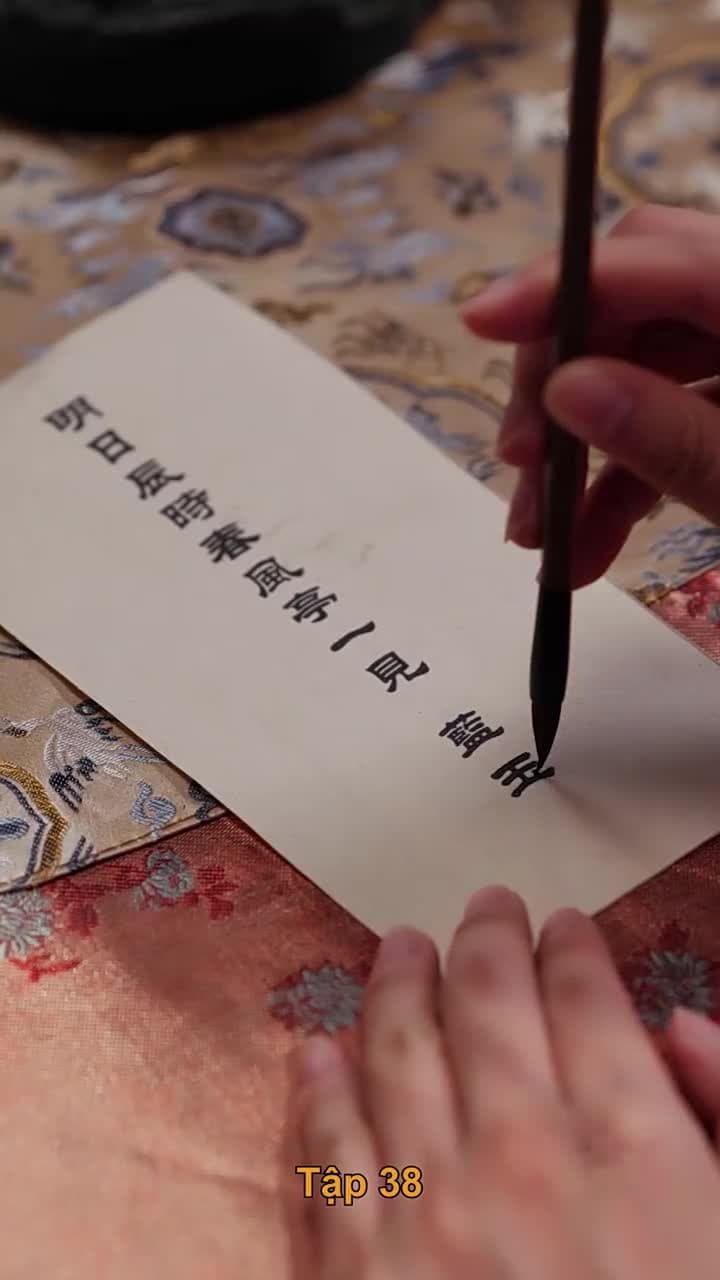 明日辰時春風亭一見 藍玉
Tập 38